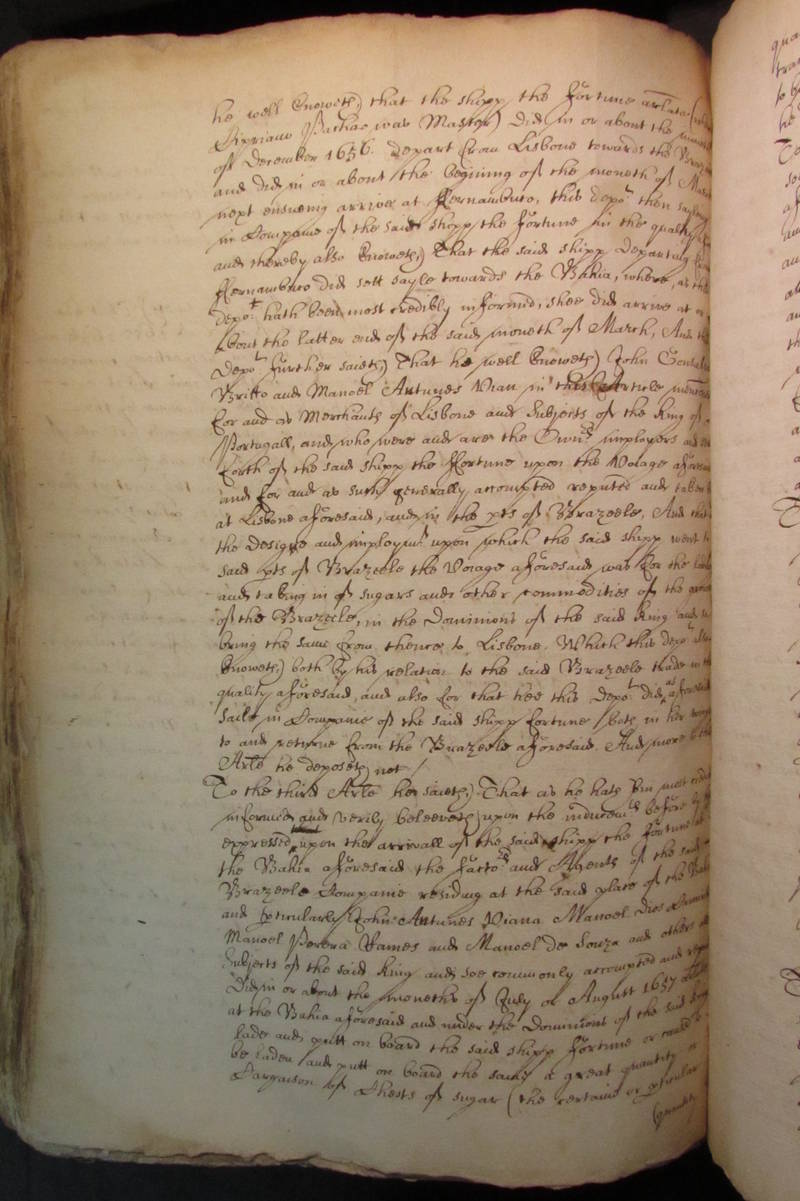 he well knoweth that the shipp the Fortune arlate
Cipriano Pachao was Master) did in or about the
of December 1656. depart from Lisbone towards the
and did in or about the begining of the moneth of
next ensueing arrive at Fernambuco, this depot then
in Companie of the said shipp the Fortune in the quality
and thereby also knoweth, That the said shipp departing
Fernambuco did sett sayle towards the Bahia, where, as this
depot hath been most credibly informed, shee did arrive at or
about the latter end of the said moneth of March, And this
depot further saieth, That he well knoweth John
Britto and Manoel Antunes Vian in this Article
for and as Merchants of Lisbone and Subjects of the King of
Portugall, and who were and are the Owners imployers and
forth of the said shipp the Fortune upon the Voiage aforesaid
and for and as such generally accompted reputed and taken
at Lisbone aforesaid, and in the pts of Brazeele, And that
the designe and imploymt upon which the said shipp went to
said pts of Brazeele the Voiage aforesaid was for the
and taking in of sugars and other commodities of the
of the Brazeele, in the Dominions of the said King and to
bring the same from thence to Lisbone. Which this depot
knoweth both by his relation to the said Brazeele trade in the
quality aforesaid, and also for that hee this depot did as aforesaid
saile in Companie of the said shipp Fortune both in her
to and returne from the Brazeele aforesaid. And more to this
Arle he deposeth not /
To the third Arle he saieth, That as he hath bin most
informed and verily beleeveth upon the inducemts before
expressed, upon the arrivall of the said shipp the Fortune at
the Bahia aforesaid the Factors and Agents of the said
Brazeele Companie residing at the said place of the
and pticularly John Antunes Viana Manoel
Manoel Perera Rames and Manoel de Souza and others
Subjects of the said King and soe commonly accompted and
did in or about the moneths of July or August 1657
at the Bahia aforesaid and under the Dominions of the said King
lade and putt on board the said shipp Fortune or
be laden and putt on board the same a great quantity or
Cargaison of Chests of sugar (the certaine or pticular
(quantity